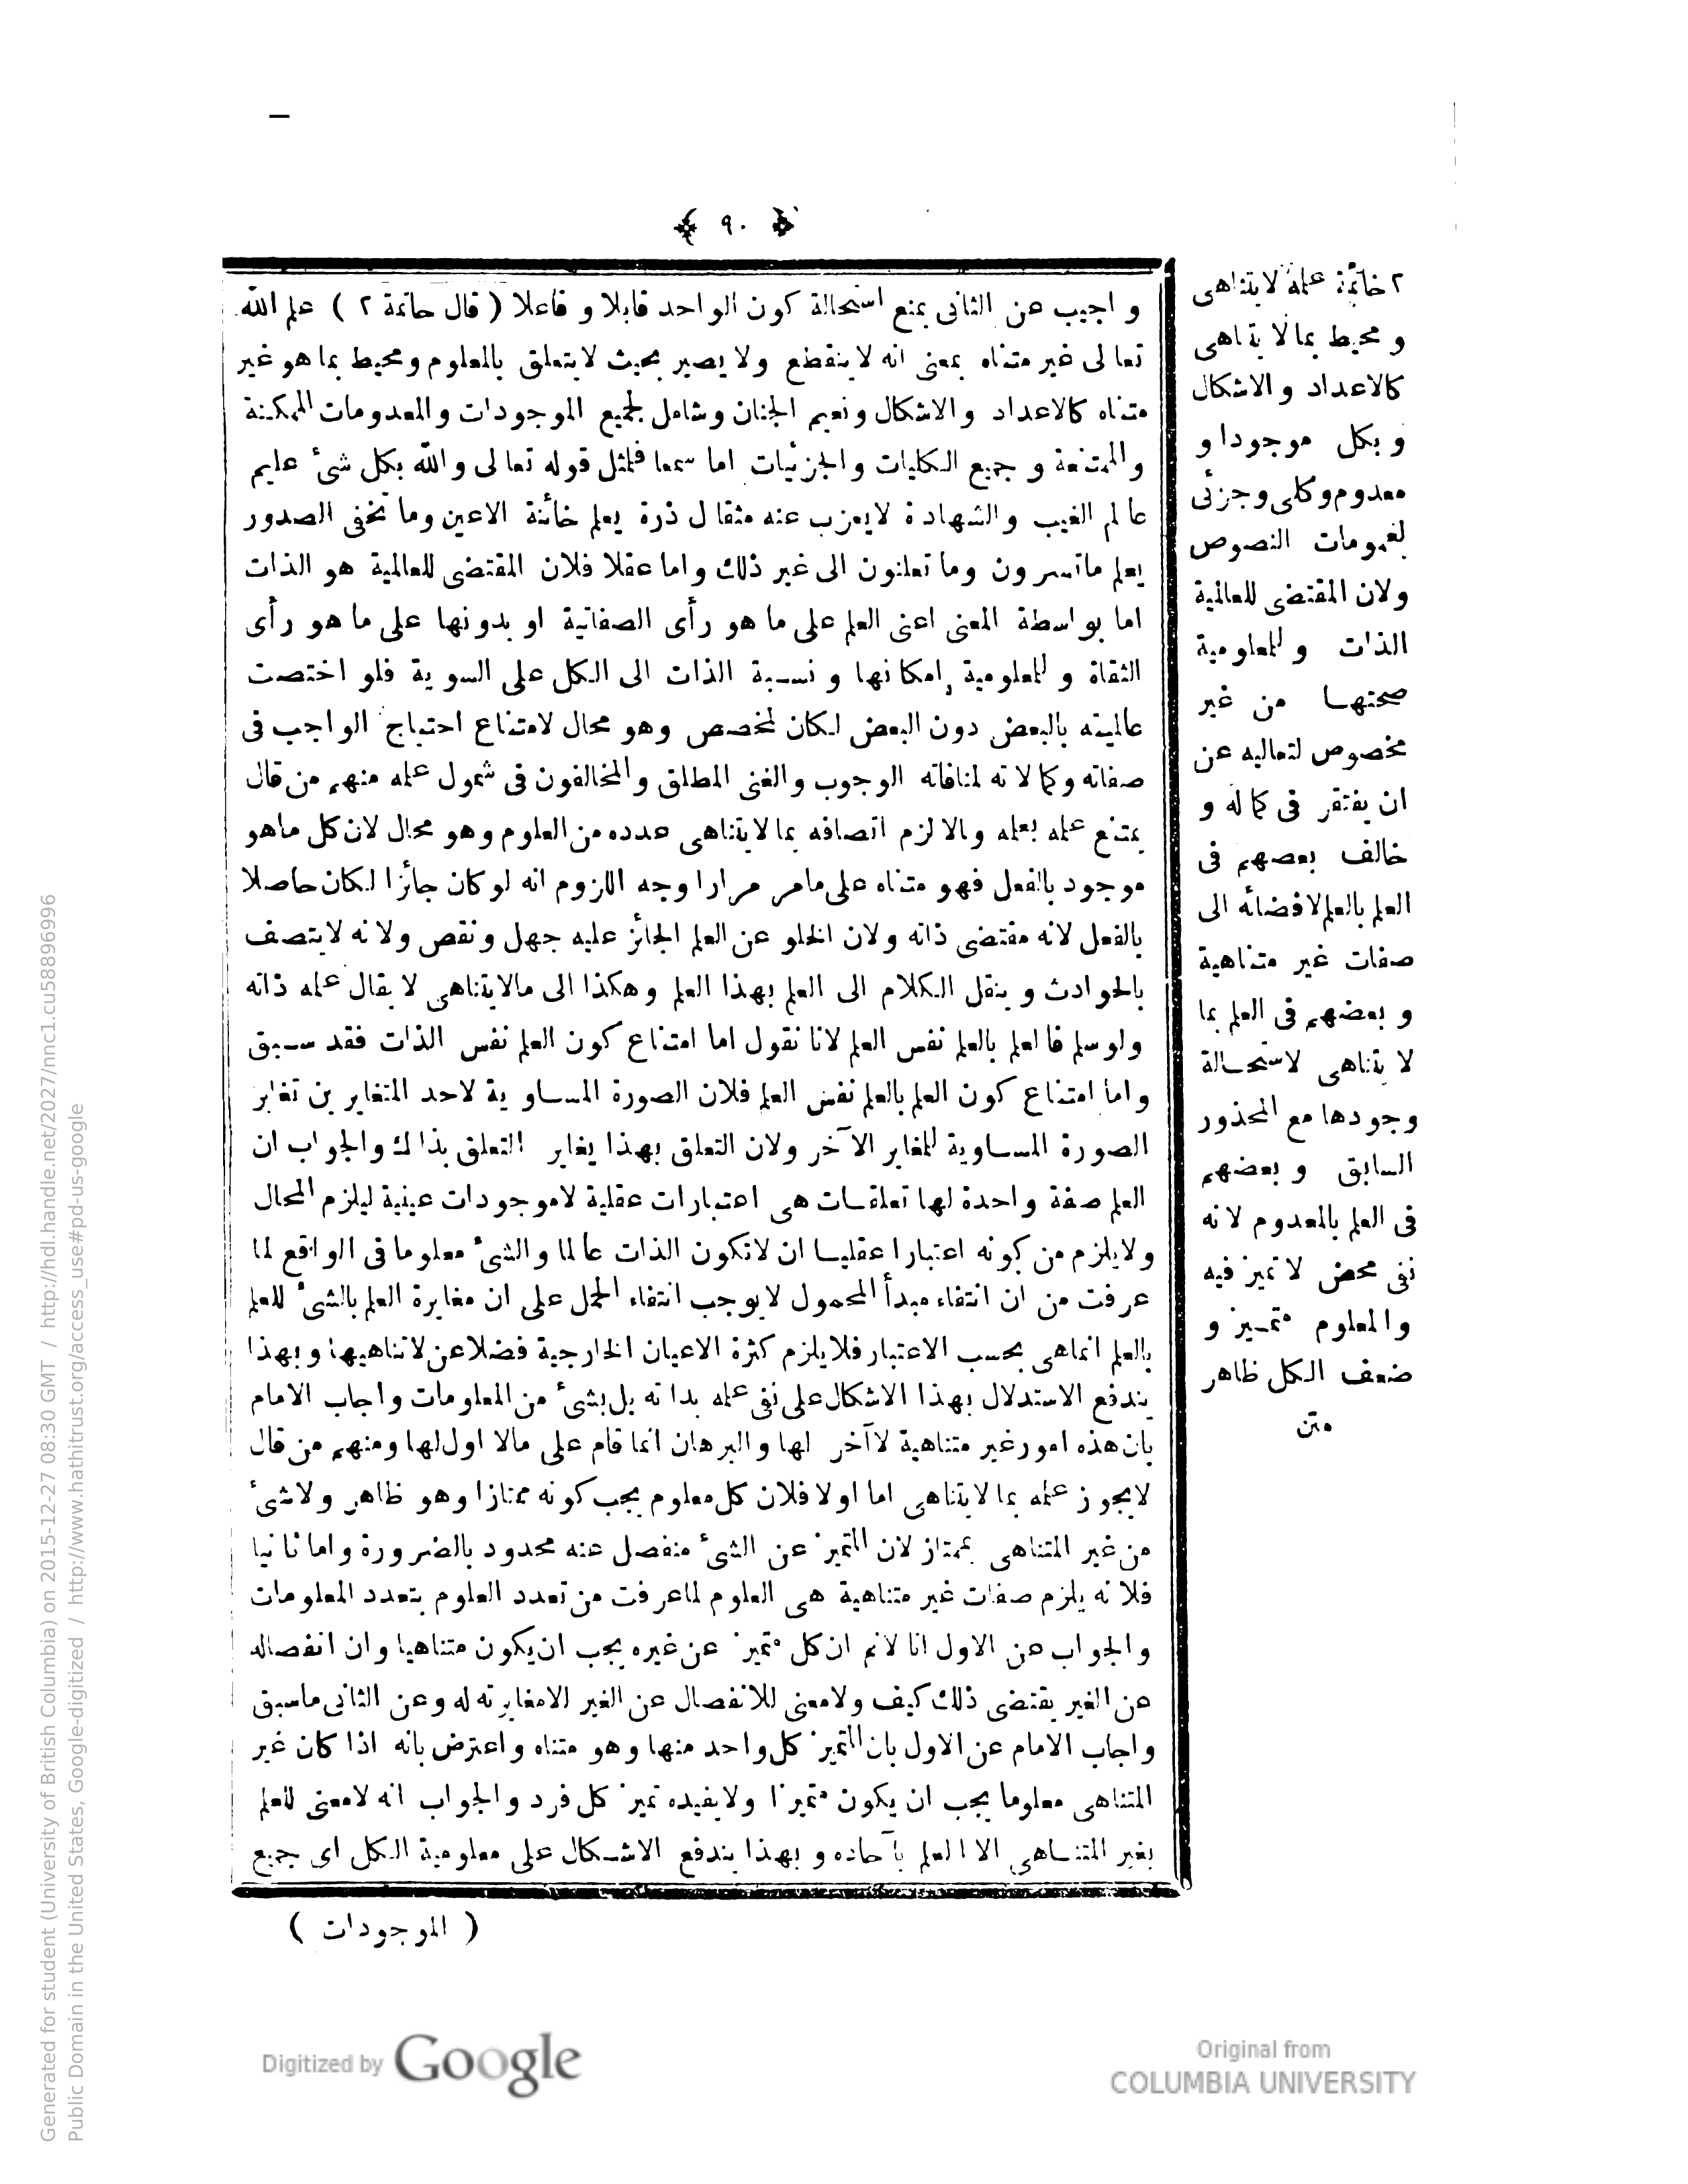 ﴿ ٩٠ ﴾
و اجيب عن الثانى بمنع استحالة كون الواحد قابلا و فاعلا ( قال خاتمة ٢ ) علم الله
تعالى غير متناه بمعنى انه لا ينقطع ولا يصير بحيث لا يتعلق بالمعلوم ومحيط بما هو غير
متناه كالاعداد والاشكال ونعيم الجنان وشامل لجميع الموجودات والمعدومات الممكنة
والممتنعة و جميع الكليات والجزئيات اما سمعا فلمثل قوله تعالى والله بكل شئ عليم
عالم الغيب والشهادة لايعزب عنه مثقال ذرة يعلم خائنة الاعين وما تخفى الصدور
يعلم ماتسرون وما تعلنون الى غير ذلك واما عقلا فلان المقتضى للعالمية هو الذات
اما بواسطة المعنى اعنى العلم على ما هو رأى الصفاتية او بدونها على ما هو رأى
الثقاة و للمعلومية امكانها و نسبة الذات الى الكل على السوية فلو اختصت
عالميته بالبعض دون البعض لكان لمخصص وهو محال لامتناع احتياج الواجب فى
صفاته وكمالاته لمنافاته الوجوب والغنى المطلق والمخالفون فى شمول علمه منهم من قال
يمتنع علمه بعلمه والا لزم اتصافه بما لايتناهى عدده من العلوم وهو محال لان كل ماهو
موجود بالفعل فهو متناه على مامر مرارا وجه اللزوم انه لوكان جائزا لكان حاصلا
بالفعل لانه مقتضى ذاته ولان الخلو عن العلم الجائز عليه جهل ونقص ولانه لايتصف
بالحوادث و ينقل الكلام الى العلم بهذا العلم وهكذا الى مالايتناهى لا يقال علمه ذاته
ولو سلم فالعلم بالعلم نفس العلم لانا نقول اما امتناع كون العلم نفس الذات فقد سبق
واما امتناع كون العلم بالعلم نفس العلم فلان الصورة المساوية لاحد المتغايرين تغاير
الصورة المساوية للمغاير الآخر ولان التعلق بهذا يغاير التعلق بذاك والجواب ان
العلم صفة واحدة لها تعلقات هى اعتبارات عقلية لاموجودات عينية ليلزم المحال
ولايلزم من كونه اعتبارا عقليا ان لاتكون الذات عالما والشئ معلوما فى الواقع لما
عرفت من ان انتفاء مبدأ المحمول لايوجب انتفاء الحمل على ان مغايرة العلم بالشئ للعلم
بالعلم انماهى بحسب الاعتبار فلايلزم كثرة الاعيان الخارجية فضلا عن لاتناهيها وبهذا
يندفع الاستدلال بهذا الاشكال على نفى علمه بذاته بل بشئ من المعلومات واجاب الامام
بان هذه امور غير متناهية لاآخر لها والبرهان انما قام على مالا اول لها ومنهم من قال
لايجوز علمه بما لايتناهى اما اولا فلان كل معلوم يجب كونه ممتازا وهو ظاهر ولاشئ
من غير المتناهى بممتاز لان المتميز عن الشئ منفصل عنه محدود بالضرورة واما ثانيا
فلانه يلزم صفات غير متناهية هى العلوم لماعرفت من تعدد العلوم بتعدد المعلومات
والجواب عن الاول انا لانم ان كل متميز عن غيره يجب ان يكون متناهيا وان انفصاله
عن الغير يقتضى ذلك كيف ولامعنى للانفصال عن الغير الامغايرته له وعن الثانى ماسبق
واجاب الامام عن الاول بان المتميز كل واحد منها وهو متناه واعترض بانه اذا كان غير
المتناهى معلوما يجب ان يكون متميزا ولايفيده تميز كل فرد والجواب انه لامعنى للعلم
بغير المتناهى الا العلم بآحاده و بهذا يندفع الاشكال على معلومية الكل اى جميع
( الموجودات )
٢ خاتمة علمه لايتناهى
و محيط بمالا يتناهى
كالاعداد والاشكال
و بكل موجود او
معدوم وكلى وجزئى
لعمومات النصوص
ولان المقتضى للعالمية
الذات و للمعلومية
صحتها من غير
مخصوص لتعاليه عن
ان يفتقر فى كماله و
خالف بعضهم فى
العلم بالعلم لافضائه الى
صفات غير متناهية
و بعضهم فى العلم بما
لا يتناهى لاستحالة
وجودها مع المحذور
السابق و بعضهم
فى العلم بالمعدوم لانه
نفى محض لا تميز فيه
والمعلوم متميز و
ضعف الكل ظاهر
متن
Generated for student (University of British Columbia) on 2015-12-27 08:30 GMT / http://hdl.handle.net/2027/nnc1.cu58896996
Public Domain in the United States, Google-digitized / http://www.hathitrust.org/access_use#pd-us-google
Digitized by Google
Original from
COLUMBIA UNIVERSITY